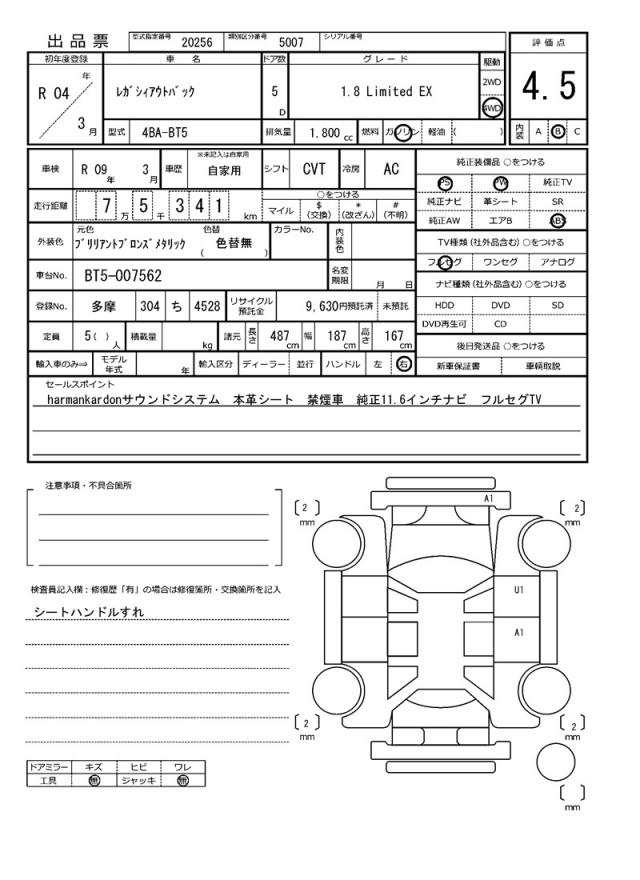 出品票 型式指定番号 20256 類別区分番号 5007 シリアル番号
評価点
4.5
内装 A B C
初年度登録 車名 ドア数 グレード 駆動
R 04 年 3 月
ﾚｶﾞｼｨｱｳﾄﾊﾞｯｸ
5 D
1.8 Limited EX
2WD
4WD
型式 4BA-BT5 排気量 1.800 cc 燃料 ガソリン 軽油 ( )
車検 R 09 年 3 月 車歴 ※未記入は自家用 自家用 シフト CVT 冷房 AC
走行距離 7 万 5 千 3 4 1 km
○をつける
マイル $ (交換) * (改ざん) # (不明)
外装色 元色 ﾌﾞﾘﾘｱﾝﾄﾌﾞﾛﾝｽﾞﾒﾀﾘｯｸ 色替 ( 色替無 ) カラーNo. 内装色
車台No. BT5-007562 名変期限 月 日
登録No. 多摩 304 ち 4528 リサイクル預託金 9,630円預託済 未預託
定員 5( ) 人 積載量 kg 諸元 長さ 487 cm 幅 187 cm 高さ 167 cm
輸入車のみ⇒ モデル年式 年 輸入区分 ディーラー 並行 ハンドル 左 右
純正装備品 ○をつける
PS PW 純正TV
純正ナビ 革シート SR
純正AW エアB ABS
TV種類 (社外品含む) ○をつける
フルセグ ワンセグ アナログ
ナビ種類 (社外品含む) ○をつける
HDD DVD SD
DVD再生可 CD
後日発送品 ○をつける
新車保証書 車輌取説
セールスポイント
harmankardonサウンドシステム 本革シート 禁煙車 純正11.6インチナビ フルセグTV
注意事項・不具合箇所
検査員記入欄：修復歴「有」の場合は修復箇所・交換箇所を記入
シートハンドルすれ
ドアミラー キズ ヒビ ワレ
工具 無 ジャッキ 無
A1
2 mm
2 mm
U1
A1
2 mm
2 mm
mm